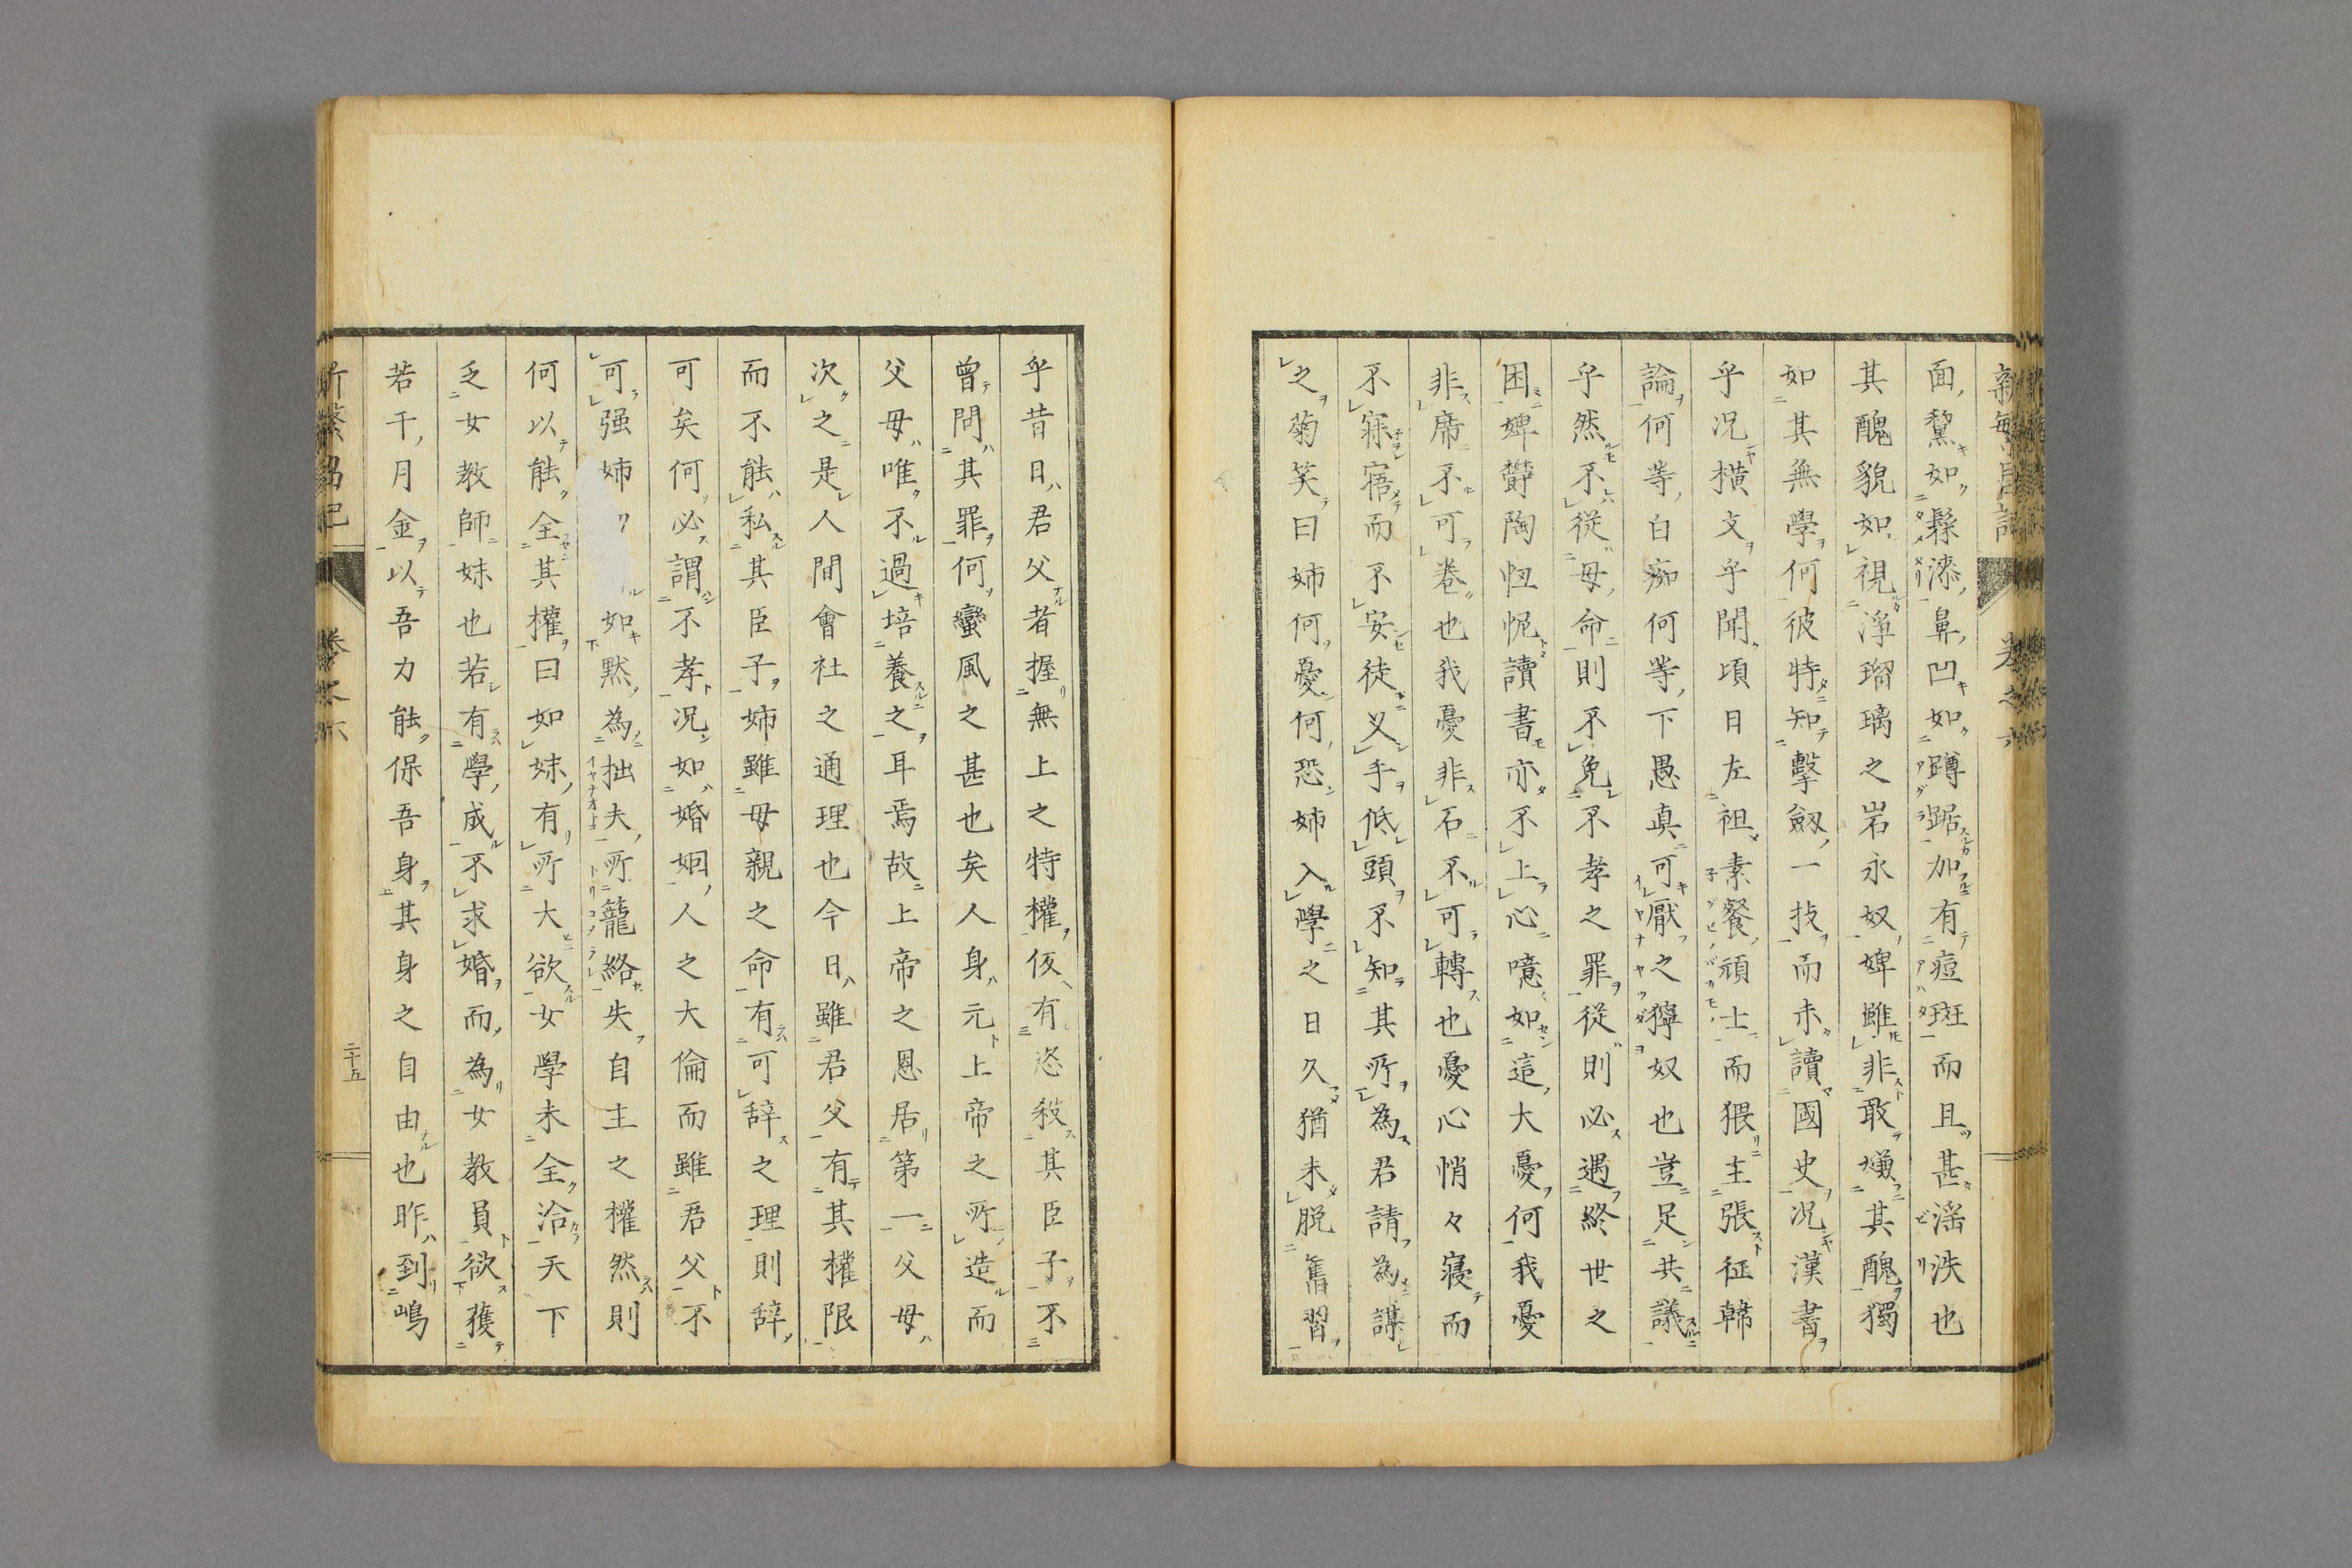 面黧如髹漆鼻凹如蹲踞加有痘斑而且甚滛泆也
其醜貌如視淨瑠璃之岩永奴婢雖非敢嫌其醜獨
如其無學何彼特知擊劔一技而未讀國史况漢書
乎况橫文乎聞頃日左袒素餐頑士而猥主張征韓
論何等白痴何等下愚真可厭之獰奴也豈足共議
乎然不從母命則不免不孝之罪從則必遇終世之
困婢欝陶忸怩讀書亦不上心噫如這大憂何我憂
非席不可卷也我憂非石不可轉也憂心悄々寢而
不寐寤而不安徒叉手低頭不知其所為君請為謀
之菊笑曰姉何憂何恐姉入學之日久猶未脱舊習
乎昔日君父者握無上之特權仮有恣殺其臣子不
曾問其罪何蠻風之甚也矣人身元上帝之所造而
父母唯不過培養之耳焉故上帝之恩居第一父母
次之是人間會社之通理也今日雖君父有其權限
而不能私其臣子姉雖母親之命有可辞之理則辞
可矣何必謂不孝况如婚姻人之大倫而雖君父不
可强姉如黙為拙夫所籠絡失自主之權然則
何以能全其權曰如妹有所大欲女學未全洽天下
乏女教師妹也若有學成不求婚而為女教員欲獲
若干月金以吾力能保吾身其身之自由也昨到嶋
卷之六
二十五